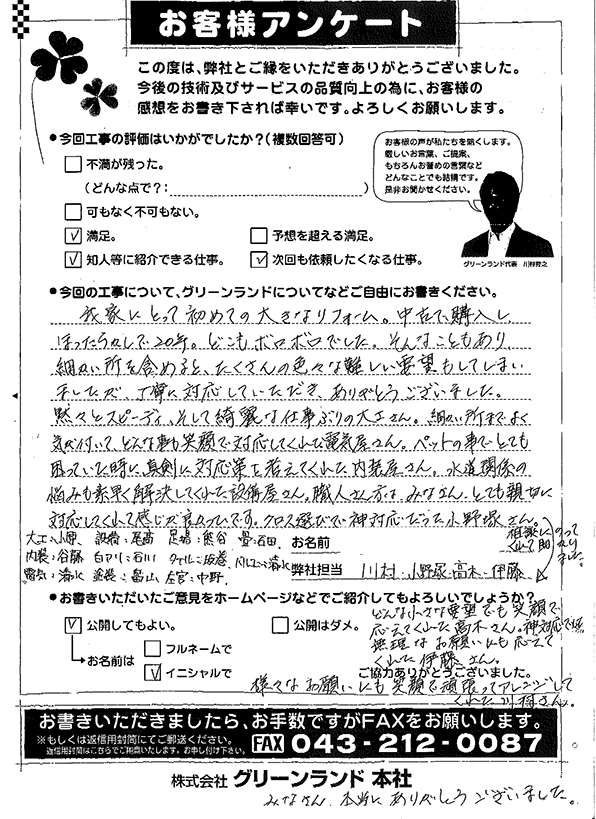 お客様アンケート
この度は、弊社とご縁をいただきありがとうございました。
今後の技術及びサービスの品質向上の為に、お客様の
感想をお書き下されば幸いです。よろしくお願いします。
●今回工事の評価はいかがでしたか?(複数回答可)
不満が残った。
(どんな点で?: )
可もなく不可もない。
満足。
予想を超える満足。
知人等に紹介できる仕事。
次回も依頼したくなる仕事。
お客様の声が私たちを動くします。
厳しいお言葉、ご提案、
もちろんお誉めの言葉など
どんなことでも結構です。
是非お聞かせください。
グリーンランド代表
●今回の工事について、グリーンランドについてなどご自由にお書きください。
我家にとって初めての大きなリフォーム。中古で購入し、
ほったらかしで20年。どこもボロボロでした。そんなこともあり、
細かい所を含めると、たくさんの色々な難しい要望もしてしまい
ましたが、丁寧に対応していただき、ありがとうございました。
黙々とスピーディ、そして綺麗な仕事ぶりの大工さん。細かい所までよく
気が付いて、どんな事も笑顔で対応してくれた電気屋さん。ペットの事でとても
困っていた時に真剣に対応策を考えてくれた内装屋さん。水道関係の
悩みも素早く解決してくれた設備屋さん。職人さん方は、みなさん、とても親切に
対応してくれて感じが良かったです。クロス選びで神対応だった小野塚さん。
相談にのってくれて助かりました。
大工:小原 設備:尾高 足場:熊谷 畳:石田
内装:谷藤 白アリ:石川 タイル:坂巻 バルコニー:清水
電気:清水 塗装:畠山 左官:中野
お名前
弊社担当 川村・小野塚・高木・伊藤
●お書きいただいたご意見をホームページなどでご紹介してもよろしいでしょうか?
公開してもよい。
公開はダメ。
お名前は
フルネームで
イニシャルで
どんな小さな要望でも笑顔で
応えてくれた高木さん。神対応で
無理なお願いにも応えて
くれた伊藤さん。
ご協力ありがとうございました。
様々なお願いにも笑顔で頑張ってアレンジして
くれた川村さん。
お書きいただきましたら、お手数ですがFAXをお願いします。
※もしくは返信用封筒にてご郵送ください。
返信用封筒はこちらでご用意いたします。お申し付け下さい。
FAX 043-212-0087
株式会社 グリーンランド 本社
みなさん、本当にありがとうございました。